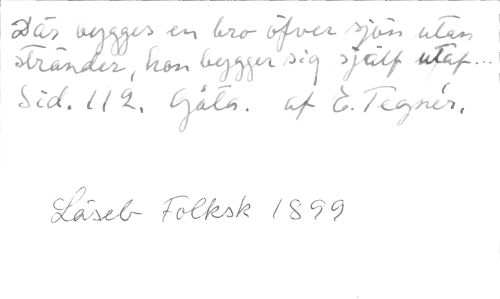 Där bygges en bro öfver sjön utan
stränder, hon bygger sig själf utaf...
Sid. 112. Gåta. af E. Tegnér.
Läseb Folksk 1899